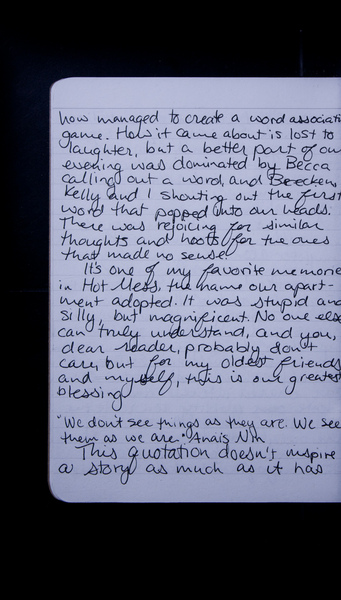 how managed to create a word associati
game. How it came about is lost to
laughter, but a better part of our
evening was dominated by Becca
calling out a word, and
Kelly and I shouting out the first
word that popped into our heads.
There was rejoicing for similar
thoughts and hoots for the ones
that made no sense.
It's one of my favorite memorie
in Hot Mess, the name our apart-
ment adopted. It was stupid and
silly, but magnificent. No one else
can truly understand, and you,
dear reader, probably don't
care, but for my oldest friends
and myself, this is our greates
blessing
"We don't see things as they are. We see
them as we are." Anais Nin
This quotation doesn't inspire
a story as much as it has